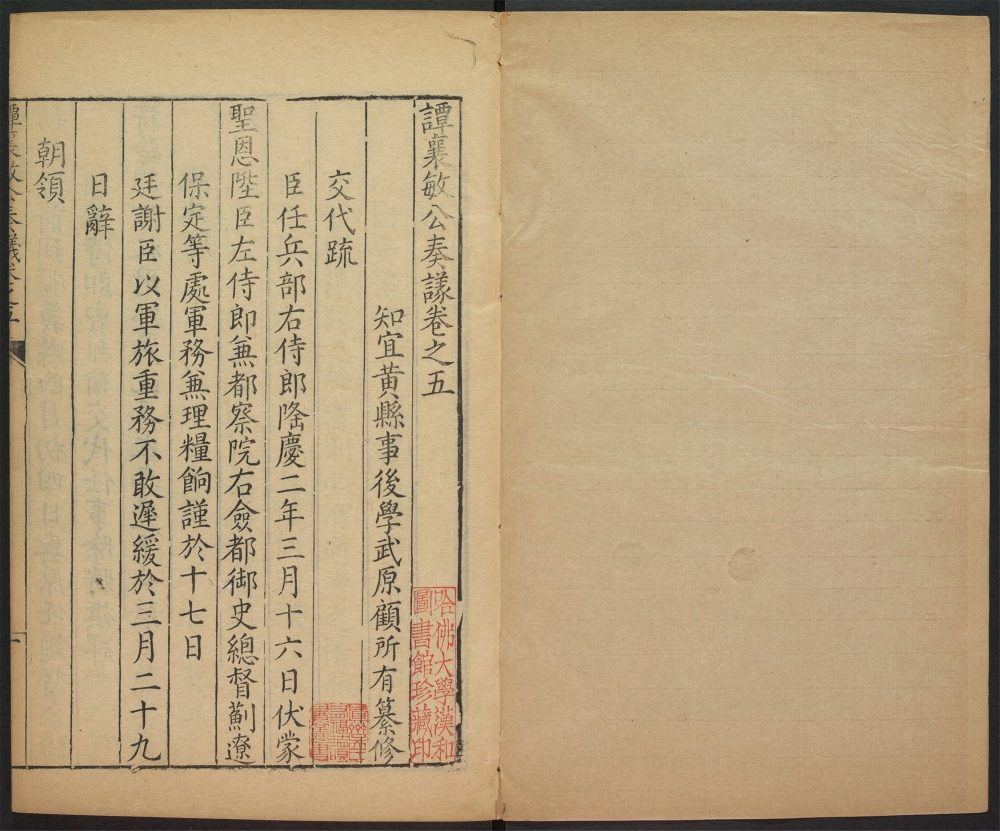 譚襄敏公奏議卷之五
知宜黃縣事後學武原顧所有纂修
交代疏
臣任兵部右侍郎隆慶二年三月十六日伏蒙
聖恩陞臣左侍郎兼都察院右僉都御史總督薊遼
保定等處軍務兼理糧餉謹於十七日
廷謝臣以軍旅重務不敢遲緩於三月二十九
日辭
朝領
譚襄敏公奏議卷之五
一
哈佛大學漢和
圖書館珍藏印